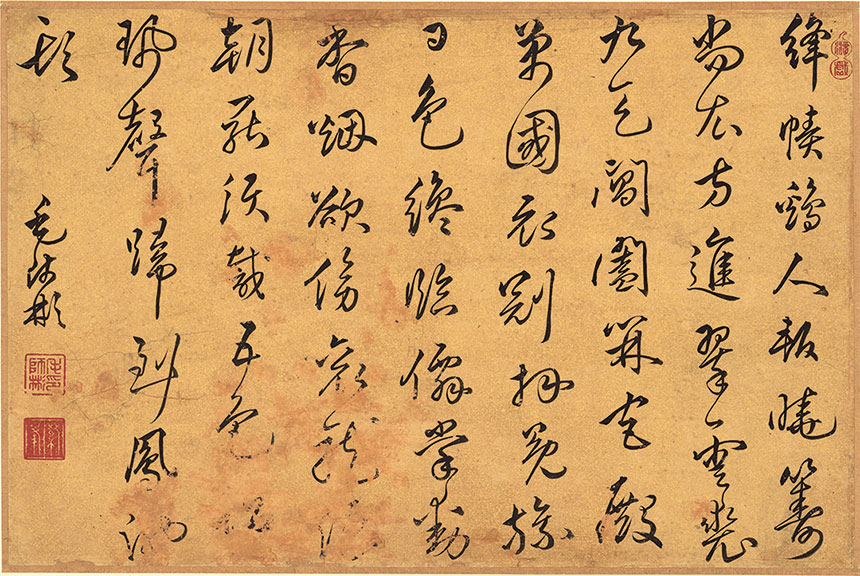 絳幘鷄人報曉籌
尚衣方進翠雲裘
九天閶闔開宮殿
萬國衣冠拜冕旒
日色纔臨僊掌動
香烟欲傍衮龍浮
朝罷須裁五色詔
珮聲歸到鳳池
頭
毛師彬